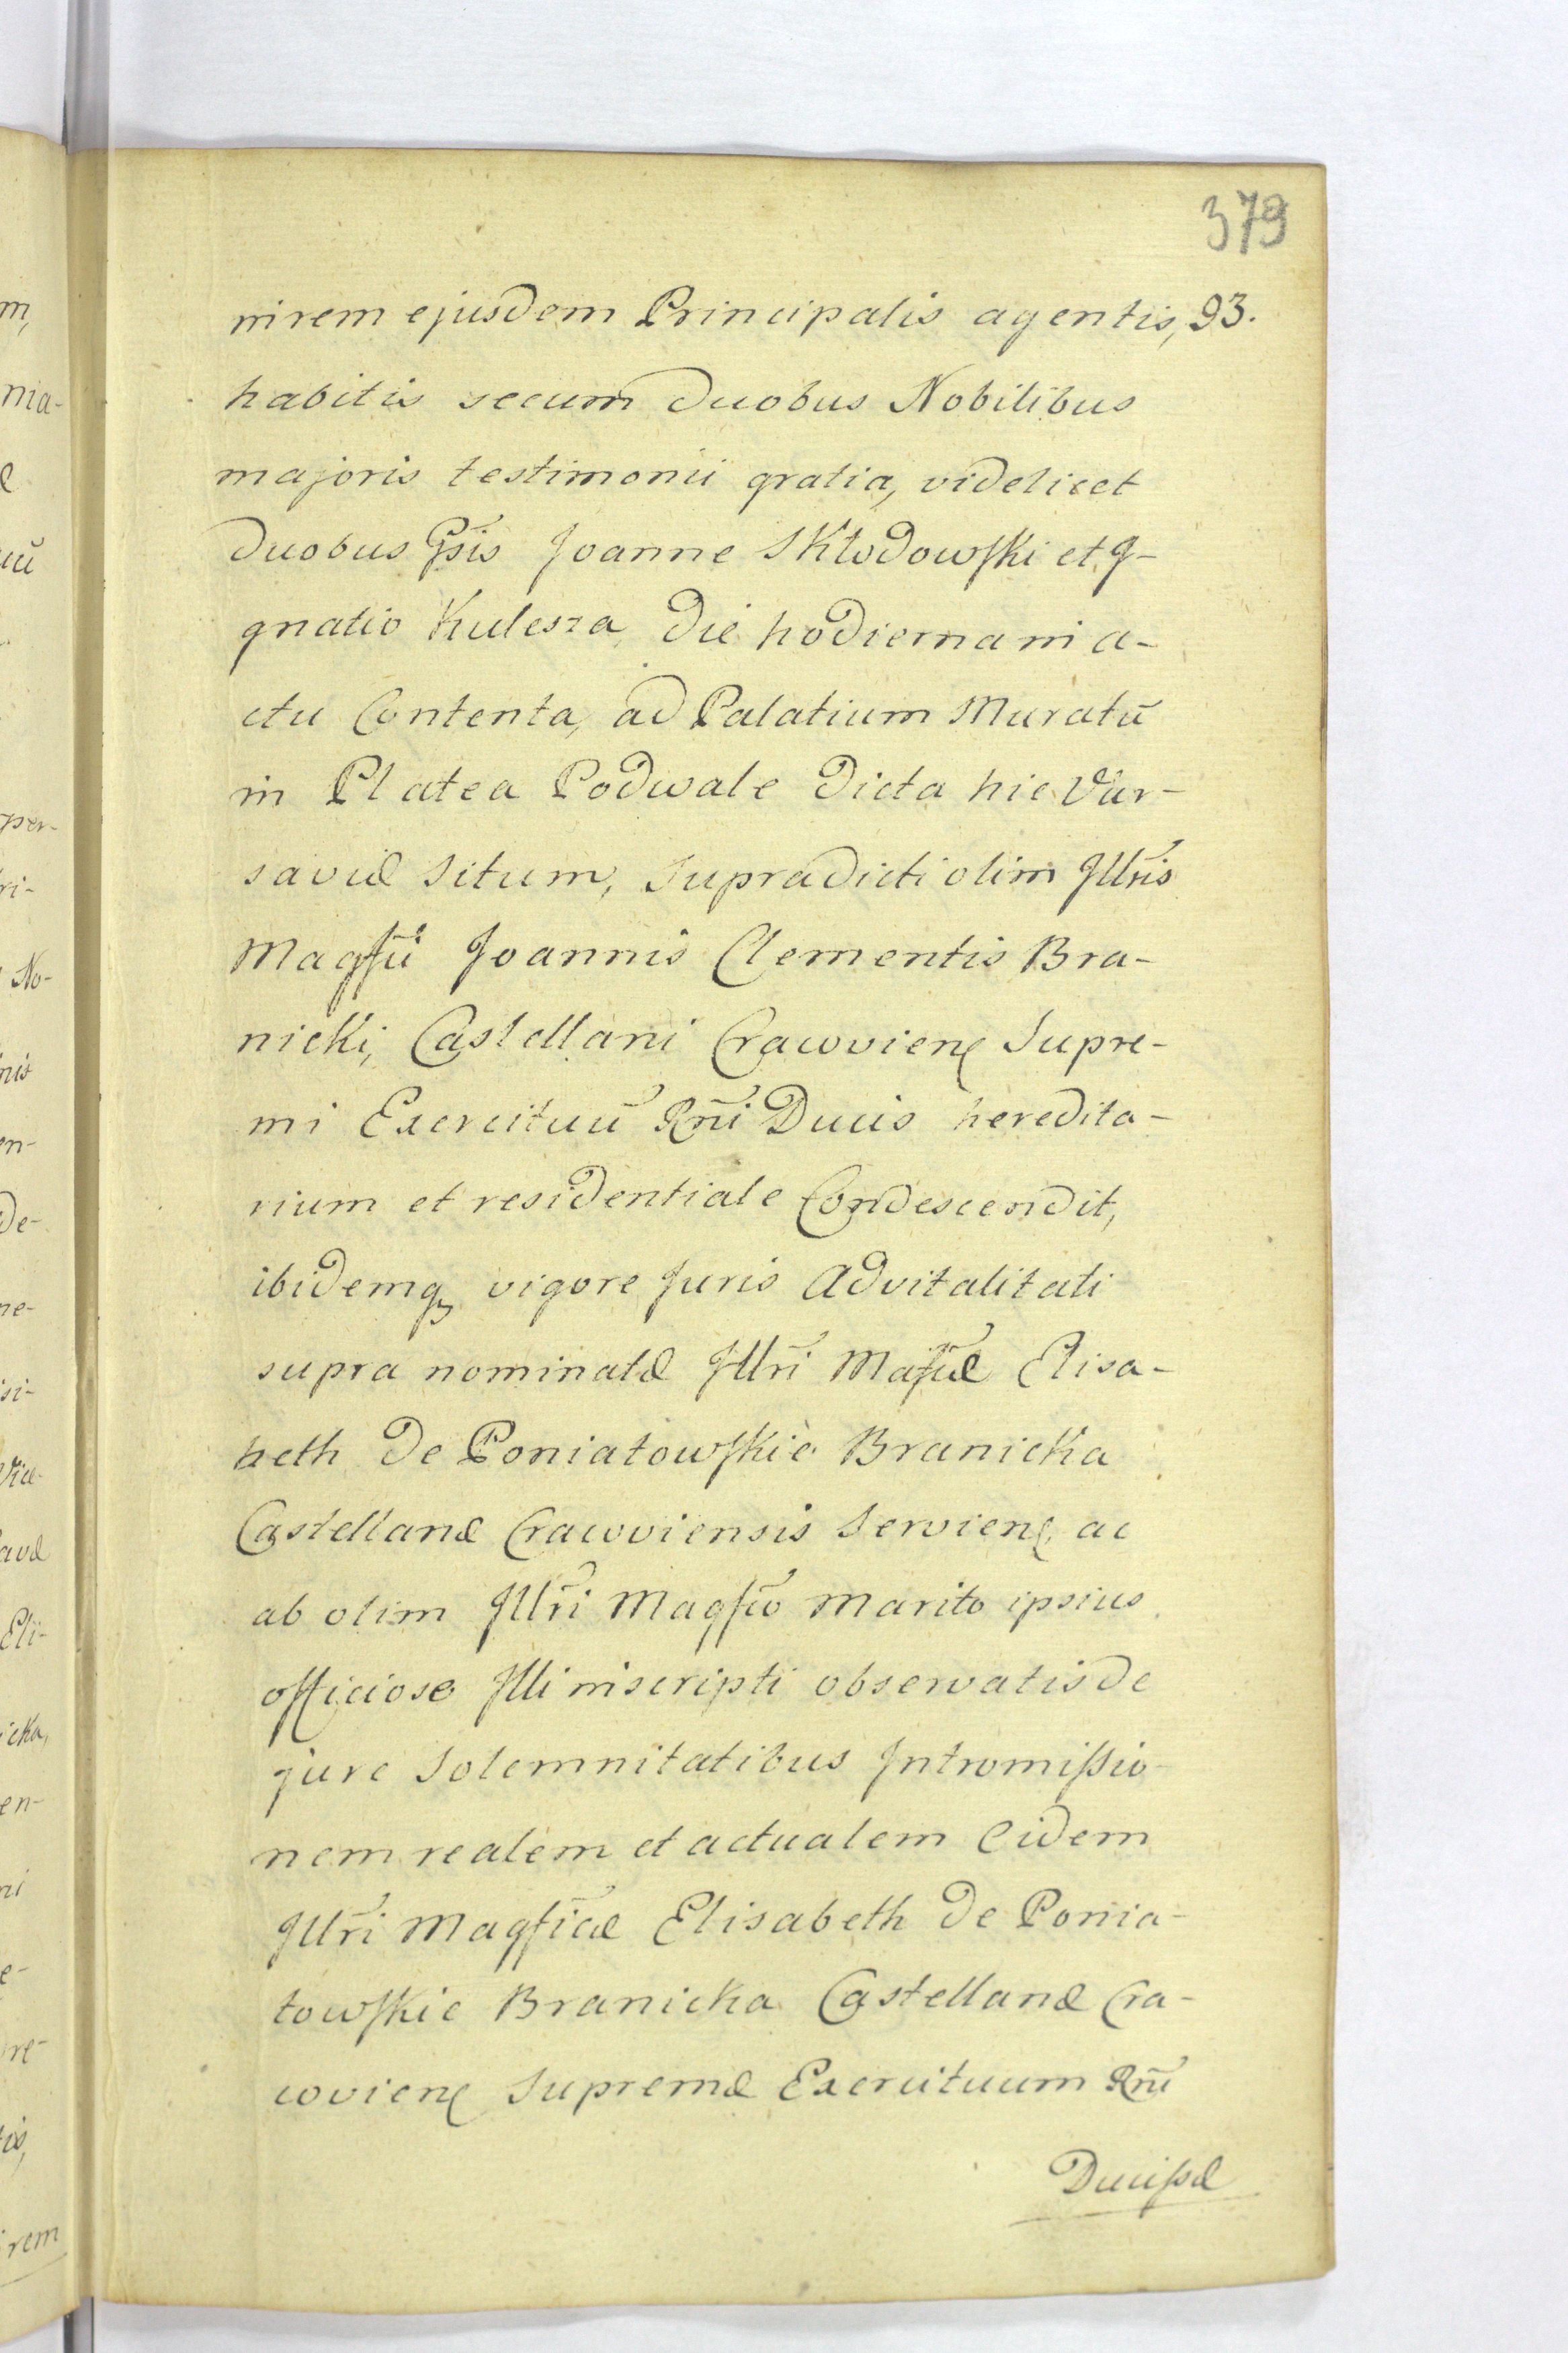 379
in rem ejusdem Principalis agentis, 93.
habitis secum duobus Nobilibus
majoris testimonii gratia, videlicet
duobus Gsis Joanne Skłodowski et J-
gnatio Kulesza die hodierna in a-
ctu Contenta, ad Palatium Muratū
in Platea Podwale dicta hic Var-
saviæ situm, supradicti olim Jllris
Magfii Joannis Clementis Bra-
nicki, Castellani Cracovien Supre-
mi Exercituū Rni Ducis heredita-
rium et residentiale Condescendit,
ibidemq vigore Juris Advitalitati
supra nominatæ Jllri Mafiæ Elisa-
beth de Poniatowskie Branicka
Castellanæ Cracoviensis Servien, ac
ab olim Jllri Magfio Marito ipsius
officiose Jlli inscripti observatis de
jure Solemnitatibus Jntromissio-
nem realem et actualem Eidem
Jllri Magficæ Elisabeth de Ponia-
towskie Branicka Castellanæ Cra-
covien Supremæ Exercituum Rni
Ducissæ
m,
nia-
uū
per-
ri-
No-
nis
en-
de-
ne-
si-
avæ
Eli-
icka,
en-
ni
e-
re-
tis,
rem